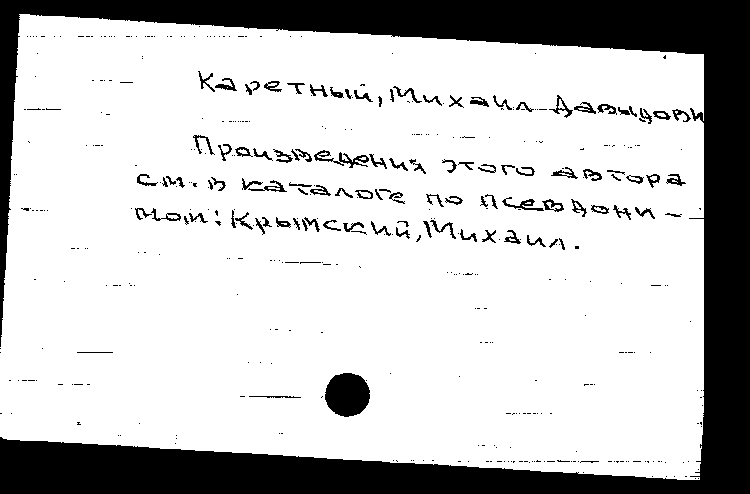 Каретный, Михаил Давыдови
Произведения этого автора
см. в каталоге по псевдони-
мом: Крымский, Михаил.